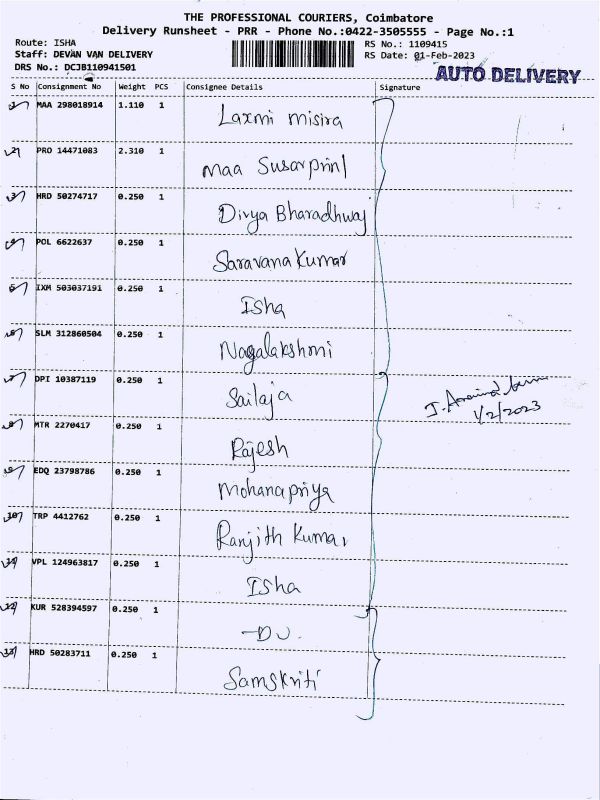 THE PROFESSIONAL COURIERS, Coimbatore
Delivery Runsheet - PRR - Phone No.:0422-3505555 - Page No.:1
Route: ISHA
Staff: DEVAN VAN DELIVERY
DRS No.: DCJB110941501
RS No.: 1109415
RS Date: 01-Feb-2023
AUTO DELIVERY
S No Consignment No Weight PCS Consignee Details Signature
1 MAA 298018914 1.110 1 Laxmi misira
2 PRO 14471083 2.310 1 Maa Susarprinl
3 HRD 50274717 0.250 1 Divya Bharadhwaj
4 POL 6622637 0.250 1 Saravana Kumar
5 IXM 503037191 0.250 1 Isha
6 SLM 312860504 0.250 1 Nagalakshmi
7 DPI 10387119 0.250 1 Sailaja
1/2/2023
8 MTR 2270417 0.250 1 Rajesh
9 EDQ 23798786 0.250 1 Mohanapriya
10 TRP 4412762 0.250 1 Ranjith Kumar
11 VPL 124963817 0.250 1 Isha
12 KUR 528394597 0.250 1 -DU.
13 HRD 50283711 0.250 1 Samskriti